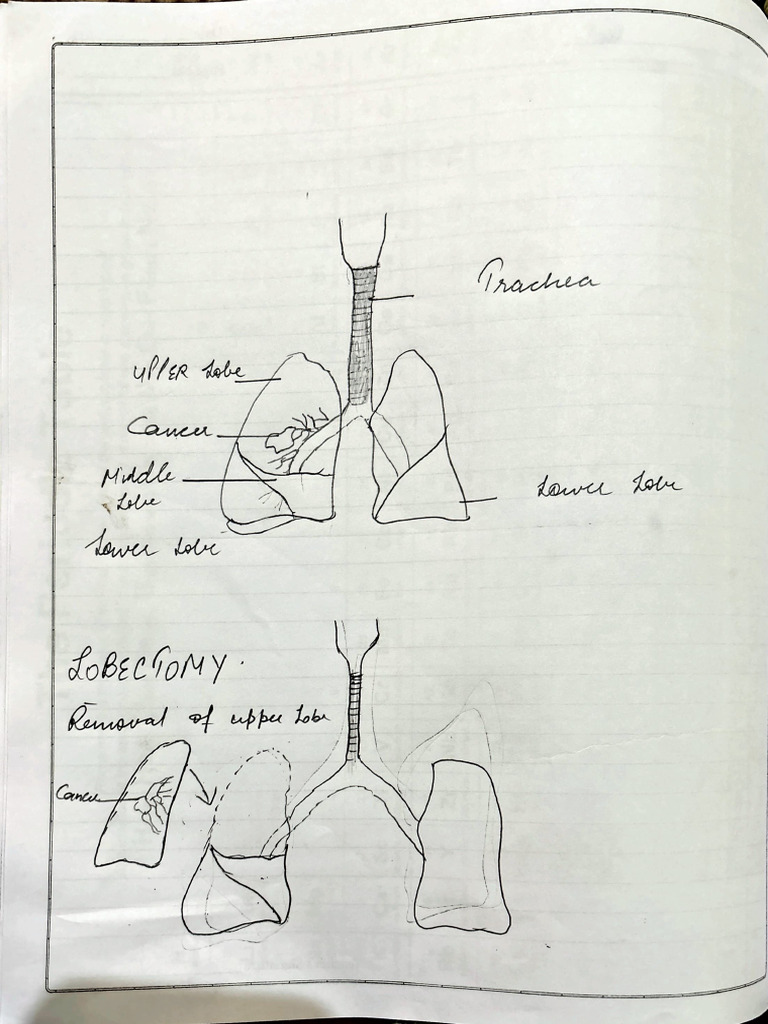 Trachea
UPPER Lobe
Cancer
Middle
Lobe
Lower Lobe
Lower Lobe
LOBECTOMY.
Removal of upper Lobe
Cancer